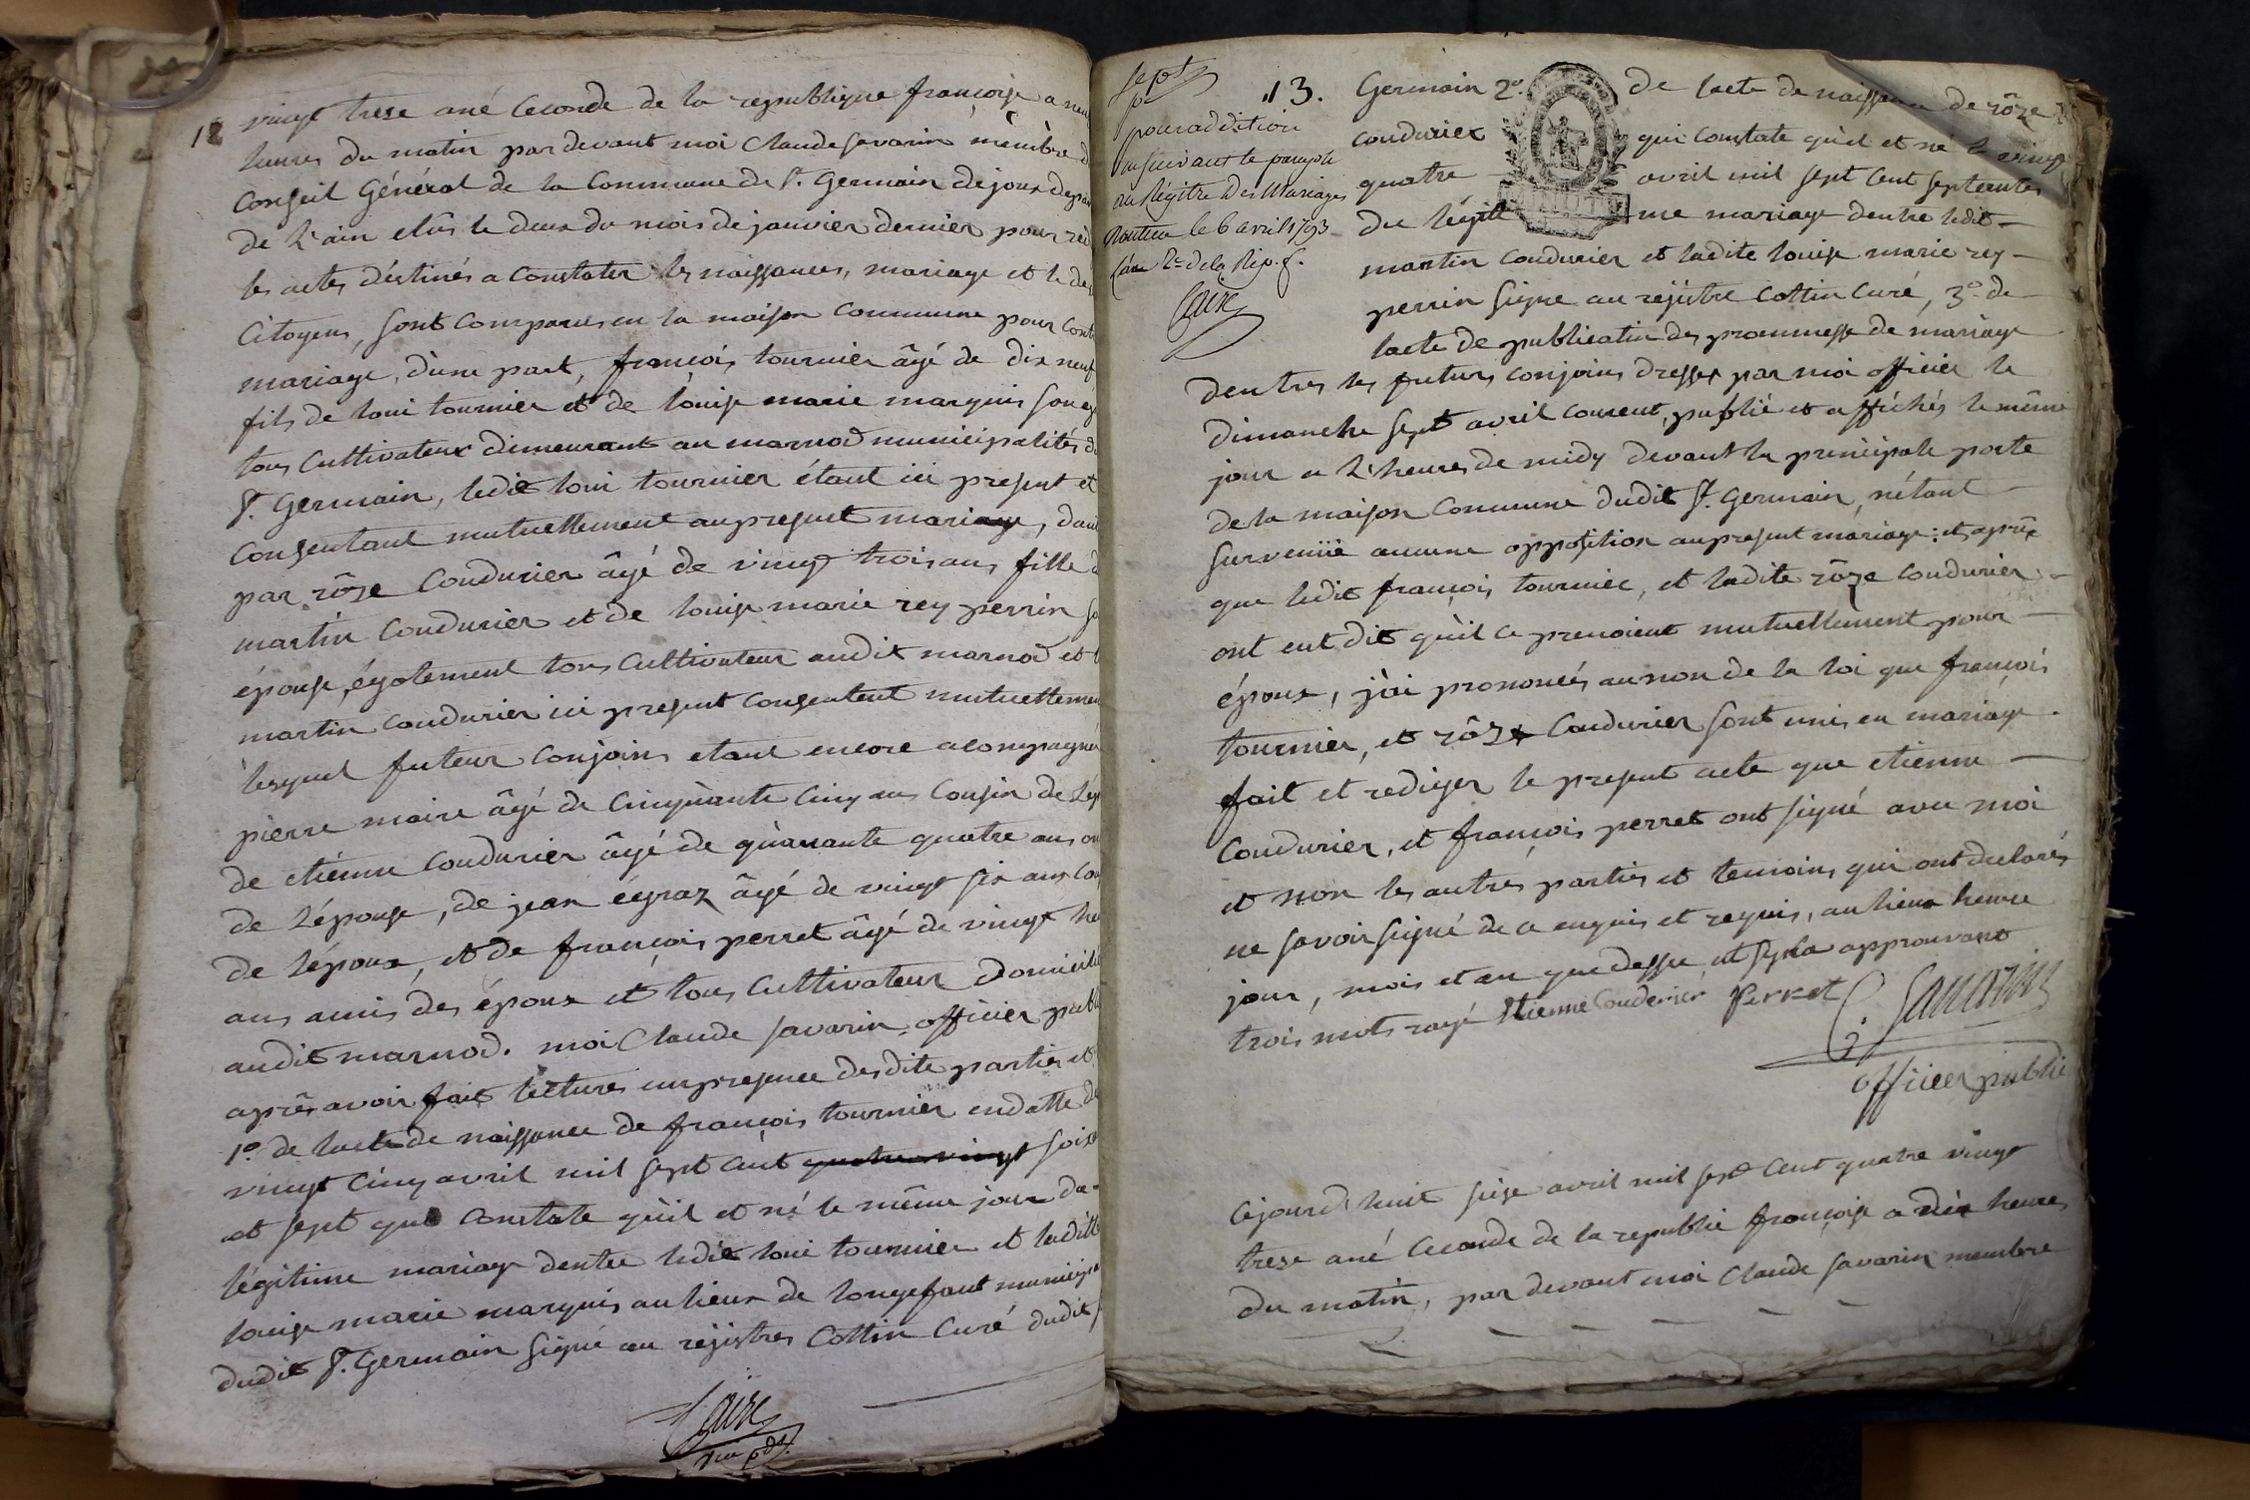 12
vingt trese ané Ceconde de la republique françoise a neu
heures du matin par devant moi Claude Savarin membre d
Conseil Général de la Commune de St. Germain de joux depar
de l'ain elûs le deux du mois de janvier dernier pour réd
les actes déstinés a Constater les naissances, mariage et le de
Citoyens, sont comparus en la maison Commune pour cont
mariage, d'une part, françois tournier âgé de dix neuf
fils de loui tournier et de louise marie marquis son ep
tous Cultivateur dimeurant au marnod municipalités d
St. Germain, ledit loui tournier étant ici present et
Consentant mutuellement au present mariage, d'aut
par rôze Coudurier âgé de vingt trois ans fille d
martin Coudurier et de louise marie rey perrin so
épouse, égolement tous Cultivateur audit marnod et l
martin coudurier ici present consentent mutuellemen
lesquel futeur Conjoins etant encore acompagné
pierre maire âgé de Cinquante Cinq ans Cousin de l'ép
de etienne Coudurier âgé de quarante quatre ans on
de l'épouse, de jean égraz âgé de vingt six ans Cou
de l'époux, et de françois perret âgé de vingt he
ans amis des époux et tous Cultivateur domicilié
audit marnod. moi Claude Savarin officier publi
après avoir fait lecture en presence desdite parties et
1o. de l'acte de naissance de françois tournier en datte d
vingt Cinq avril mil sept Cent quatre vingt soixa
et sept que Constate qu'il et né le même jour du
légitime mariage d'entre ledit loui tournier et ladite
louise marie marquis au lieux de longefant municip
dudit St. Germain signé au rejistres Cottin Curé dudit
13.
pour addition
en suivant le
au Régitre Des Mariages
Nantua le 6 avril 1793
l'an 2e de la Rep. f.
Germain 2o. de l'acte de naissance de rôze
coudurier qui constate qu'el et né le vingt
quatre avril mil sept Cent septente
du légitime mariage d'entre ledit
martin Coudurier et ladite louise marie rey
perrin signe au rejistre Cottin Curé, 3o. de
l'acte de publicatin des proumesse de mariage
d'entres les futurs conjoins dresser par moi officier le
dimanche sept avril courent, publié et afféchés le même
jour a l'heures de midy devant la principale porte
de la maison Commune dudit St. Germain, n'étant
survenüe aucune opposition au present mariage: et après
que ledit françois tournier, et ladite rôze Coudurier
ont eut dit qu'il ce prenoient mutuellement pour
époux, j'ài prononcés au non de la loi que françois
tournier, et rôze Coudurier sont unis en mariage.
fait et rediger le present acte que etienne
Coudurier, et françois perret ont signé avec moi
et non les autrés parties et temoins qui ont declarés
ne savoir signé de ce enquis et requis, au lieux heure
jour, mois et an que dessu, et approuvant
trois mots rayé Etienne Couderier Perret C. Savarin
officier public
Cejourd'huit seize avril mil sept Cent quatre vingt
trese ané Ceconde de la republic françoise a dix heures
du matin, par devant moi Claude Savarin membre